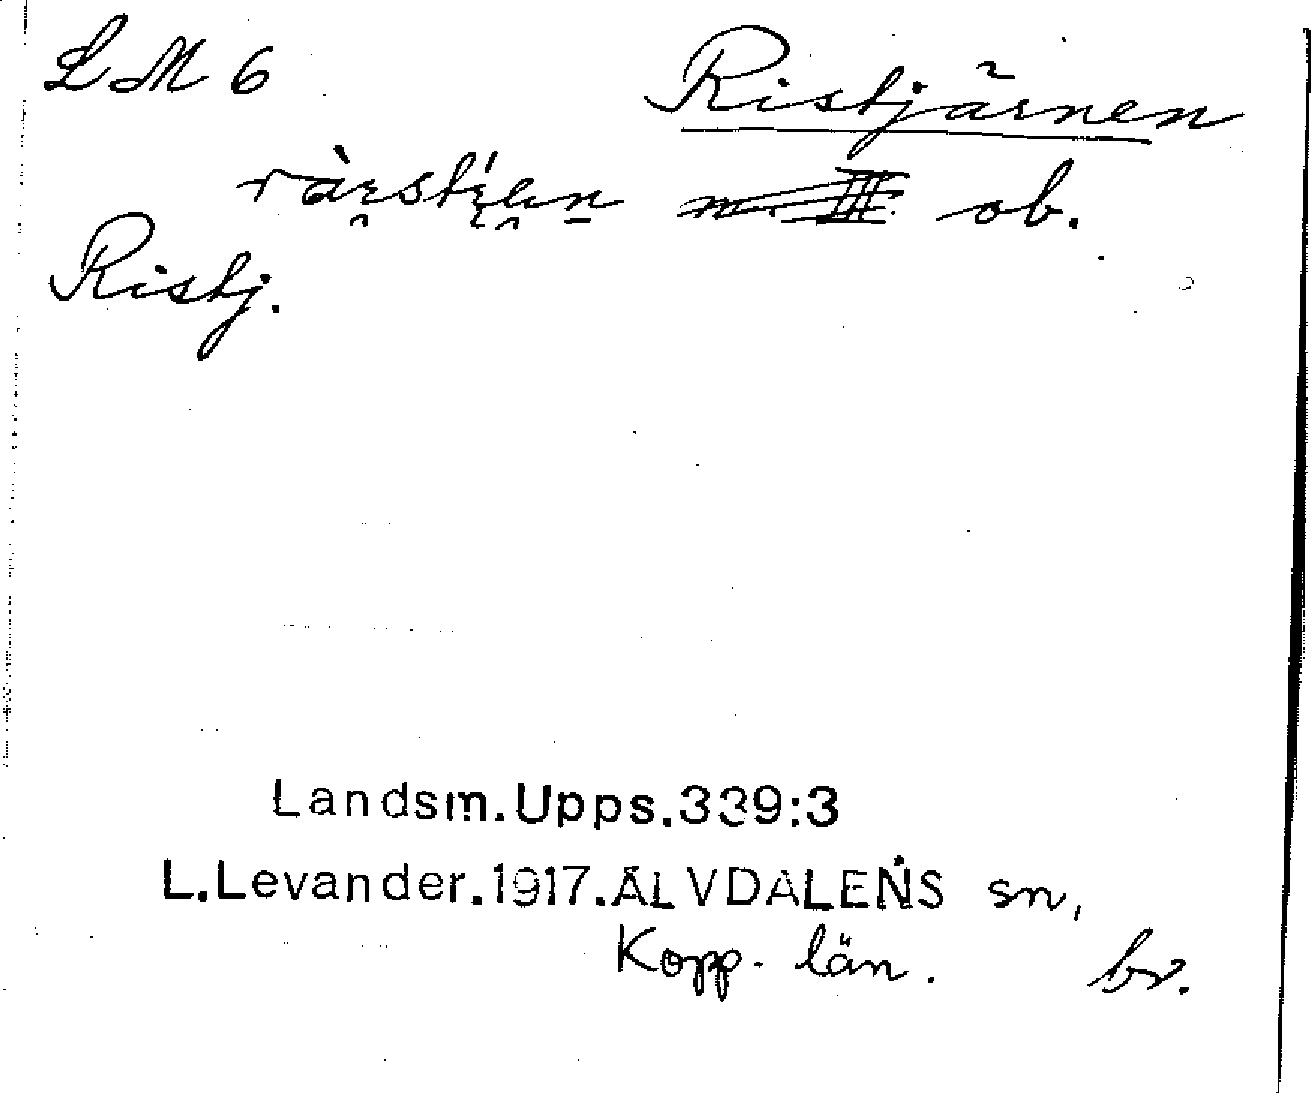 LM 6 Ristjärnen
ob.
Ristj.
Landsm.Upps.339:3
L.Levander.1917.ÄLVDALENS sn,
Kopp. län. br.